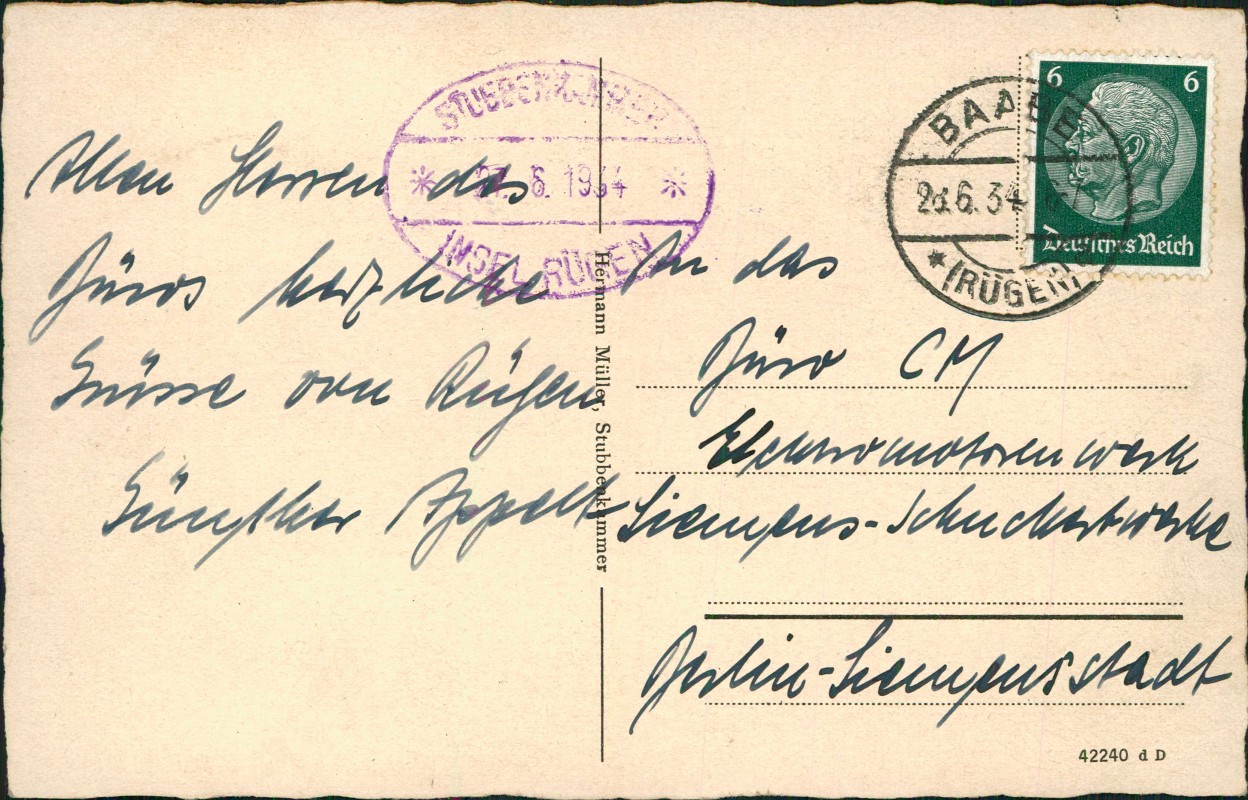 Allen Herren des
Büros herzliche
Grüsse von Rügen
Günther Appelt
STUBBENKAMMER
* 21. 6. 1934 *
INSEL RÜGEN
Hermann Müller, Stubbenkammer
BAABE
6.34
* (RÜGEN)
6 6
Deutsches Reich
An das
Büro CM
Elektromotorenwerk
Siemens-Schuckertwerke
Berlin-Siemensstadt
42240 d D